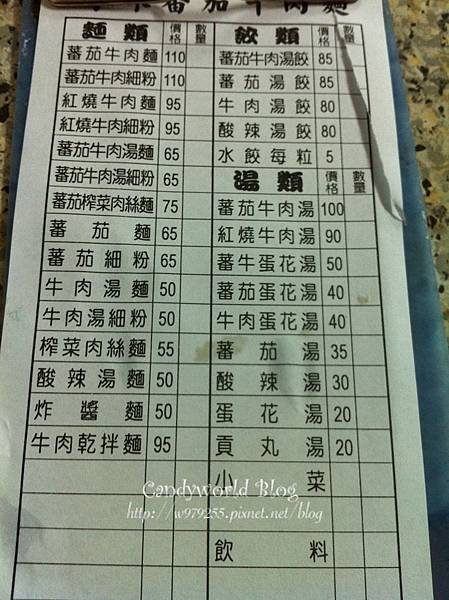 番茄牛肉麵
麵類 價格 數量
蕃茄牛肉麵 110
蕃茄牛肉細粉 110
紅燒牛肉麵 95
紅燒牛肉細粉 95
蕃茄牛肉湯麵 65
蕃茄牛肉湯細粉 65
蕃茄榨菜肉絲麵 75
蕃茄麵 65
蕃茄細粉 65
牛肉湯麵 50
牛肉湯細粉 50
榨菜肉絲麵 55
酸辣湯麵 50
炸醬麵 50
牛肉乾拌麵 95
餃類 價格 數量
蕃茄牛肉湯餃 85
蕃茄湯餃 85
牛肉湯餃 80
酸辣湯餃 80
水餃每粒 5
湯類 價格 數量
蕃茄牛肉湯 100
紅燒牛肉湯 90
蕃牛蛋花湯 50
蕃茄蛋花湯 40
牛肉蛋花湯 40
蕃茄湯 35
酸辣湯 30
蛋花湯 20
貢丸湯 20
小菜
飲料
Candyworld Blog
http://w979255.pixnet.net/blog